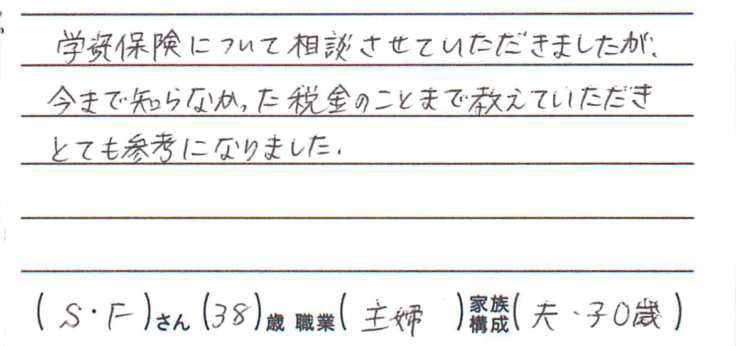 学資保険について相談させていただきましたが、
今まで知らなかった税金のことまで教えていただき
とても参考になりました.
(S・F)さん(38)歳 職業(主婦)家族構成(夫・子0歳)